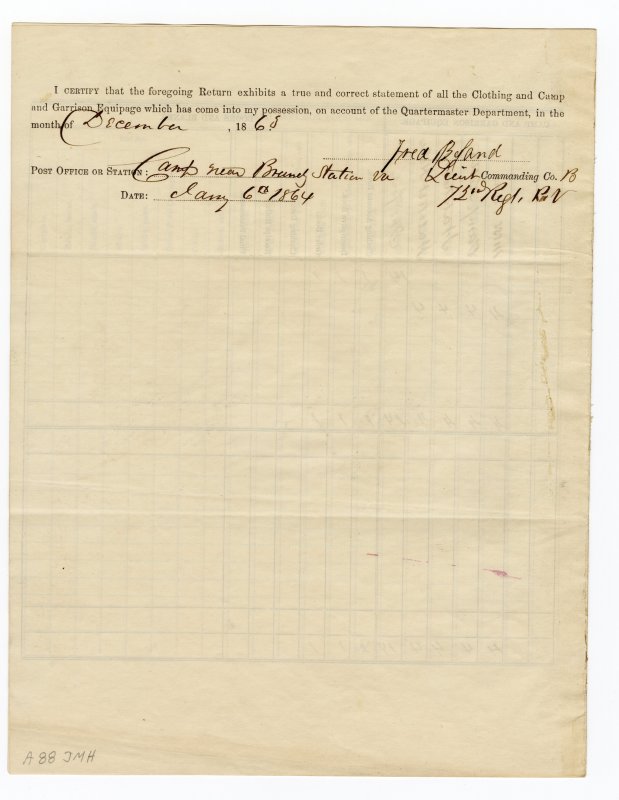 I CERTIFY that the foregoing Return exhibits a true and correct statement of all the Clothing and Camp
and Garrison Equipage which has come into my possession, on account of the Quartermaster Department, in the
month of December , 1863
Fred
POST OFFICE OR STATION: Camp near Brandy Station Va Lieut Commanding Co. B
DATE: Jany 6th 1864 73rd Regt.
A 88 JMH